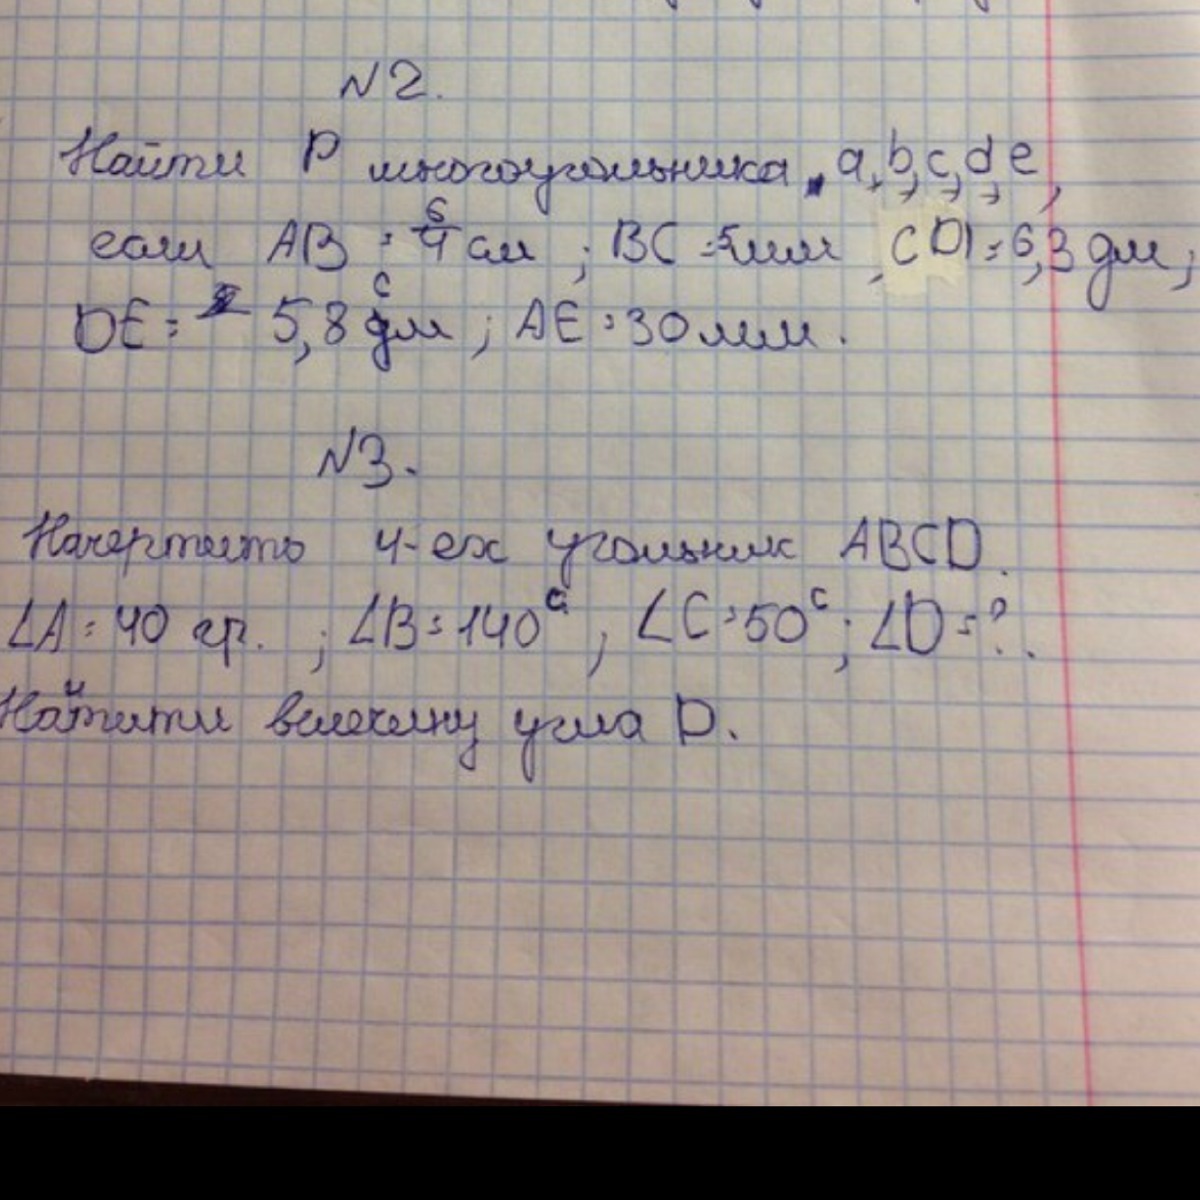 N2.
Найти P многоугольника a, b, c, d, e,
если AB = 6/4 см ; BC = 5мм , CD = 6,3 дм ;
DE = 5,8 дм ; AE = 30 мм .
N3.
Начертить 4-ех угольник ABCD.
∠A = 40 гр. ; ∠B = 140° , ∠C = 50° ; ∠D = ? .
Найти величину угла D.